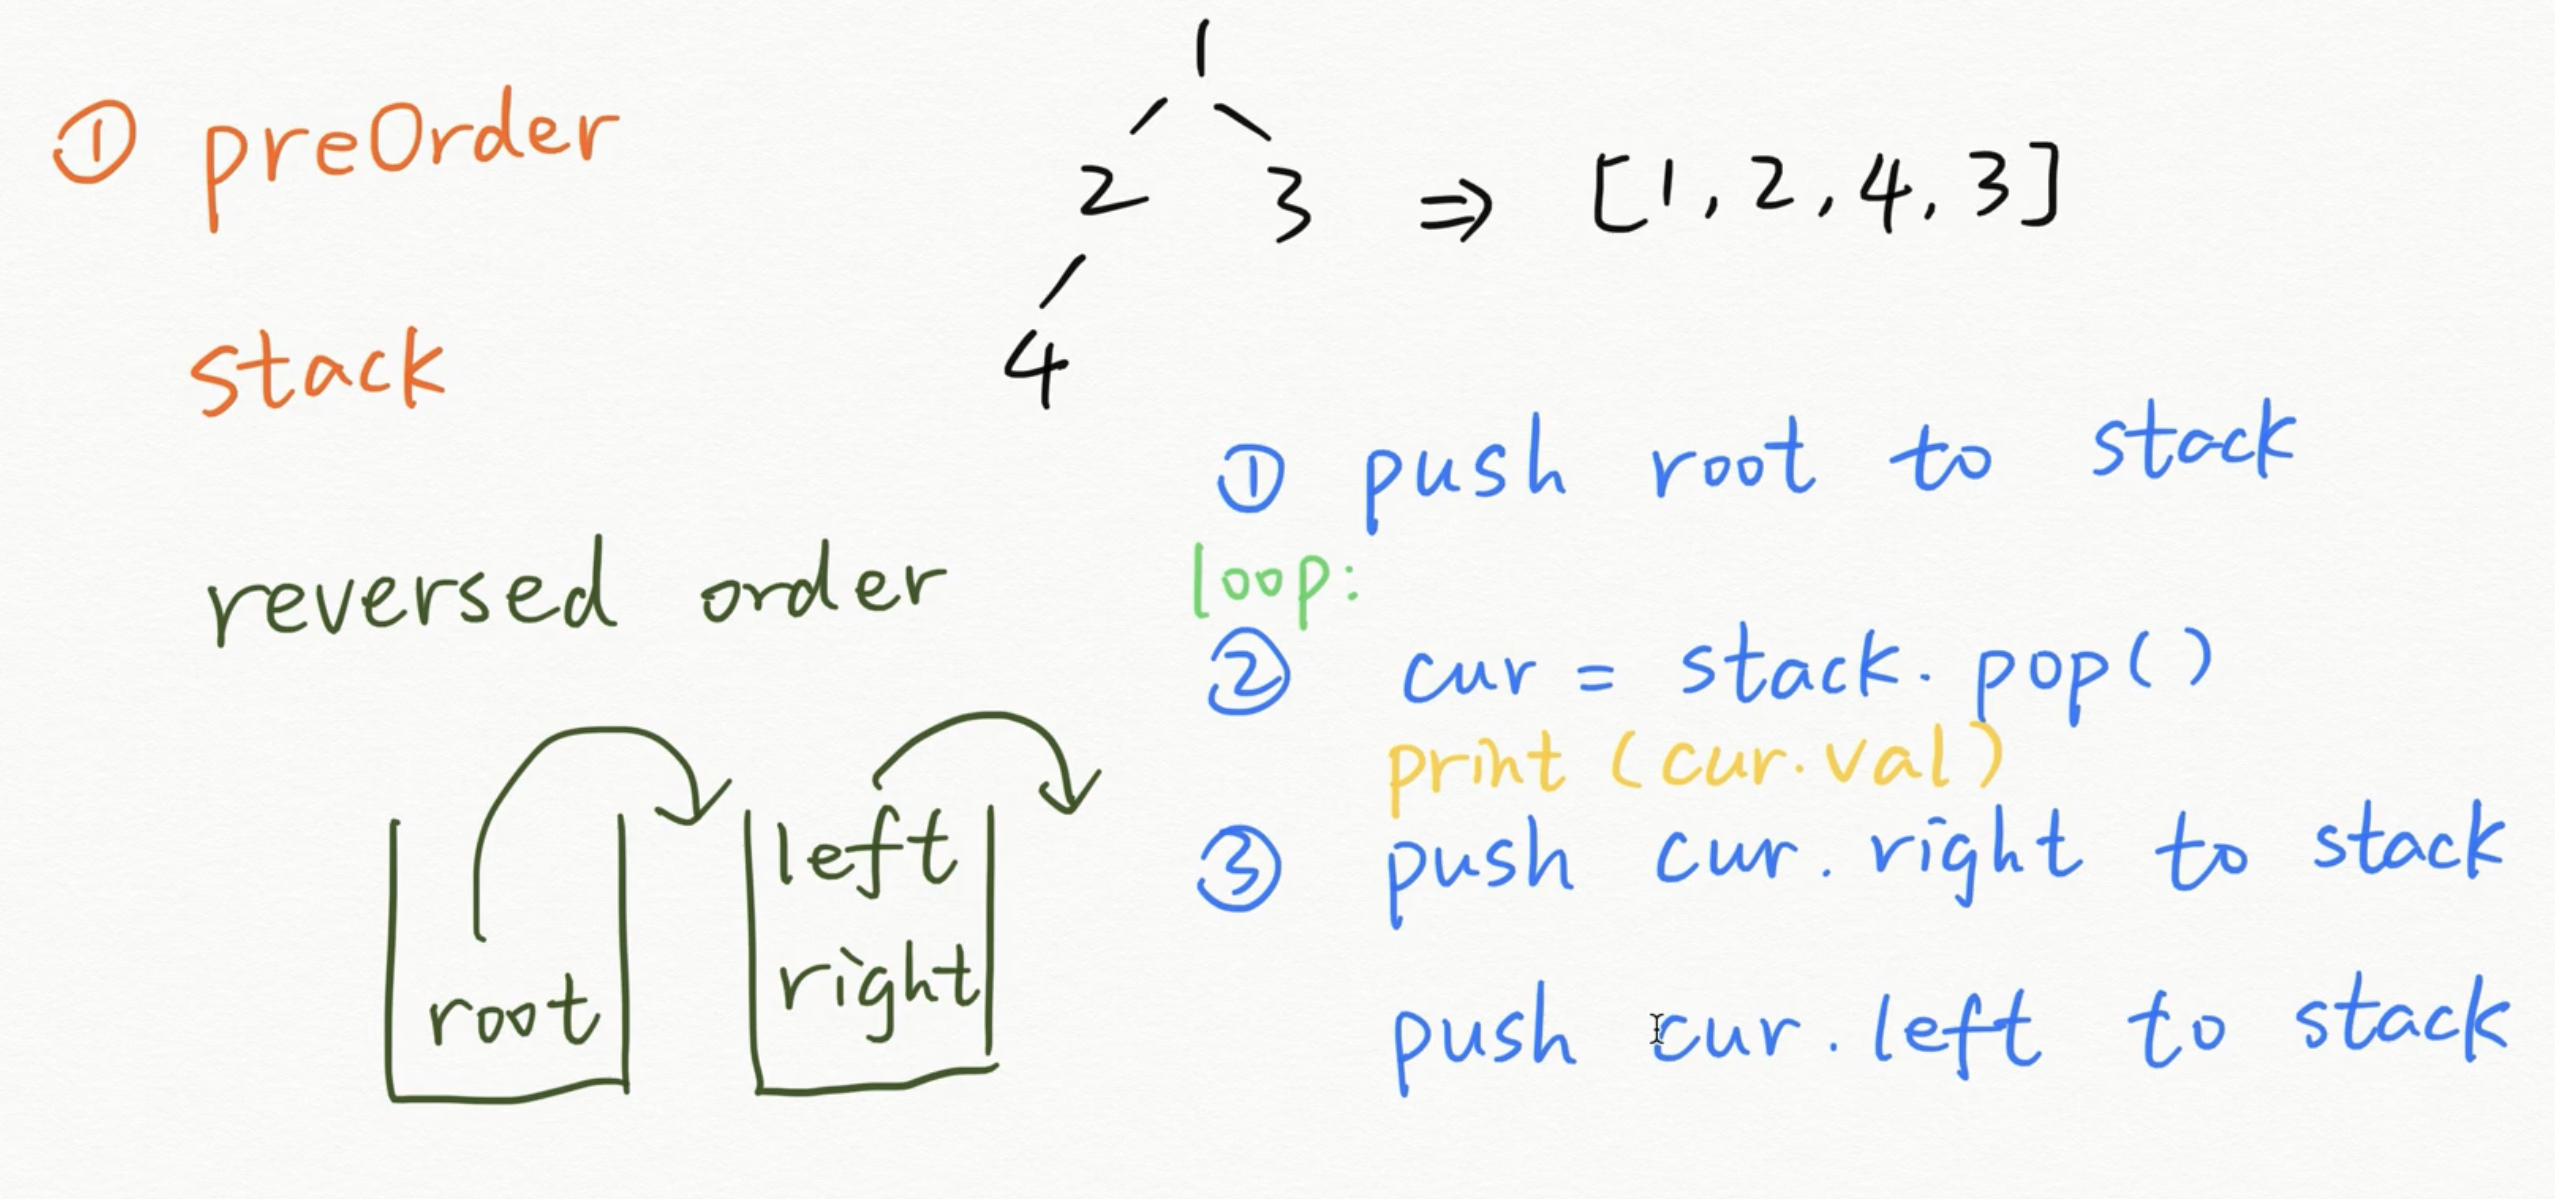 ① preOrder
stack
reversed order
root
left
right
1
2 3 ⇒ [1, 2, 4, 3]
4
① push root to stack
loop:
② cur = stack. pop()
print (cur.val)
③ push cur. right to stack
push cur. left to stack